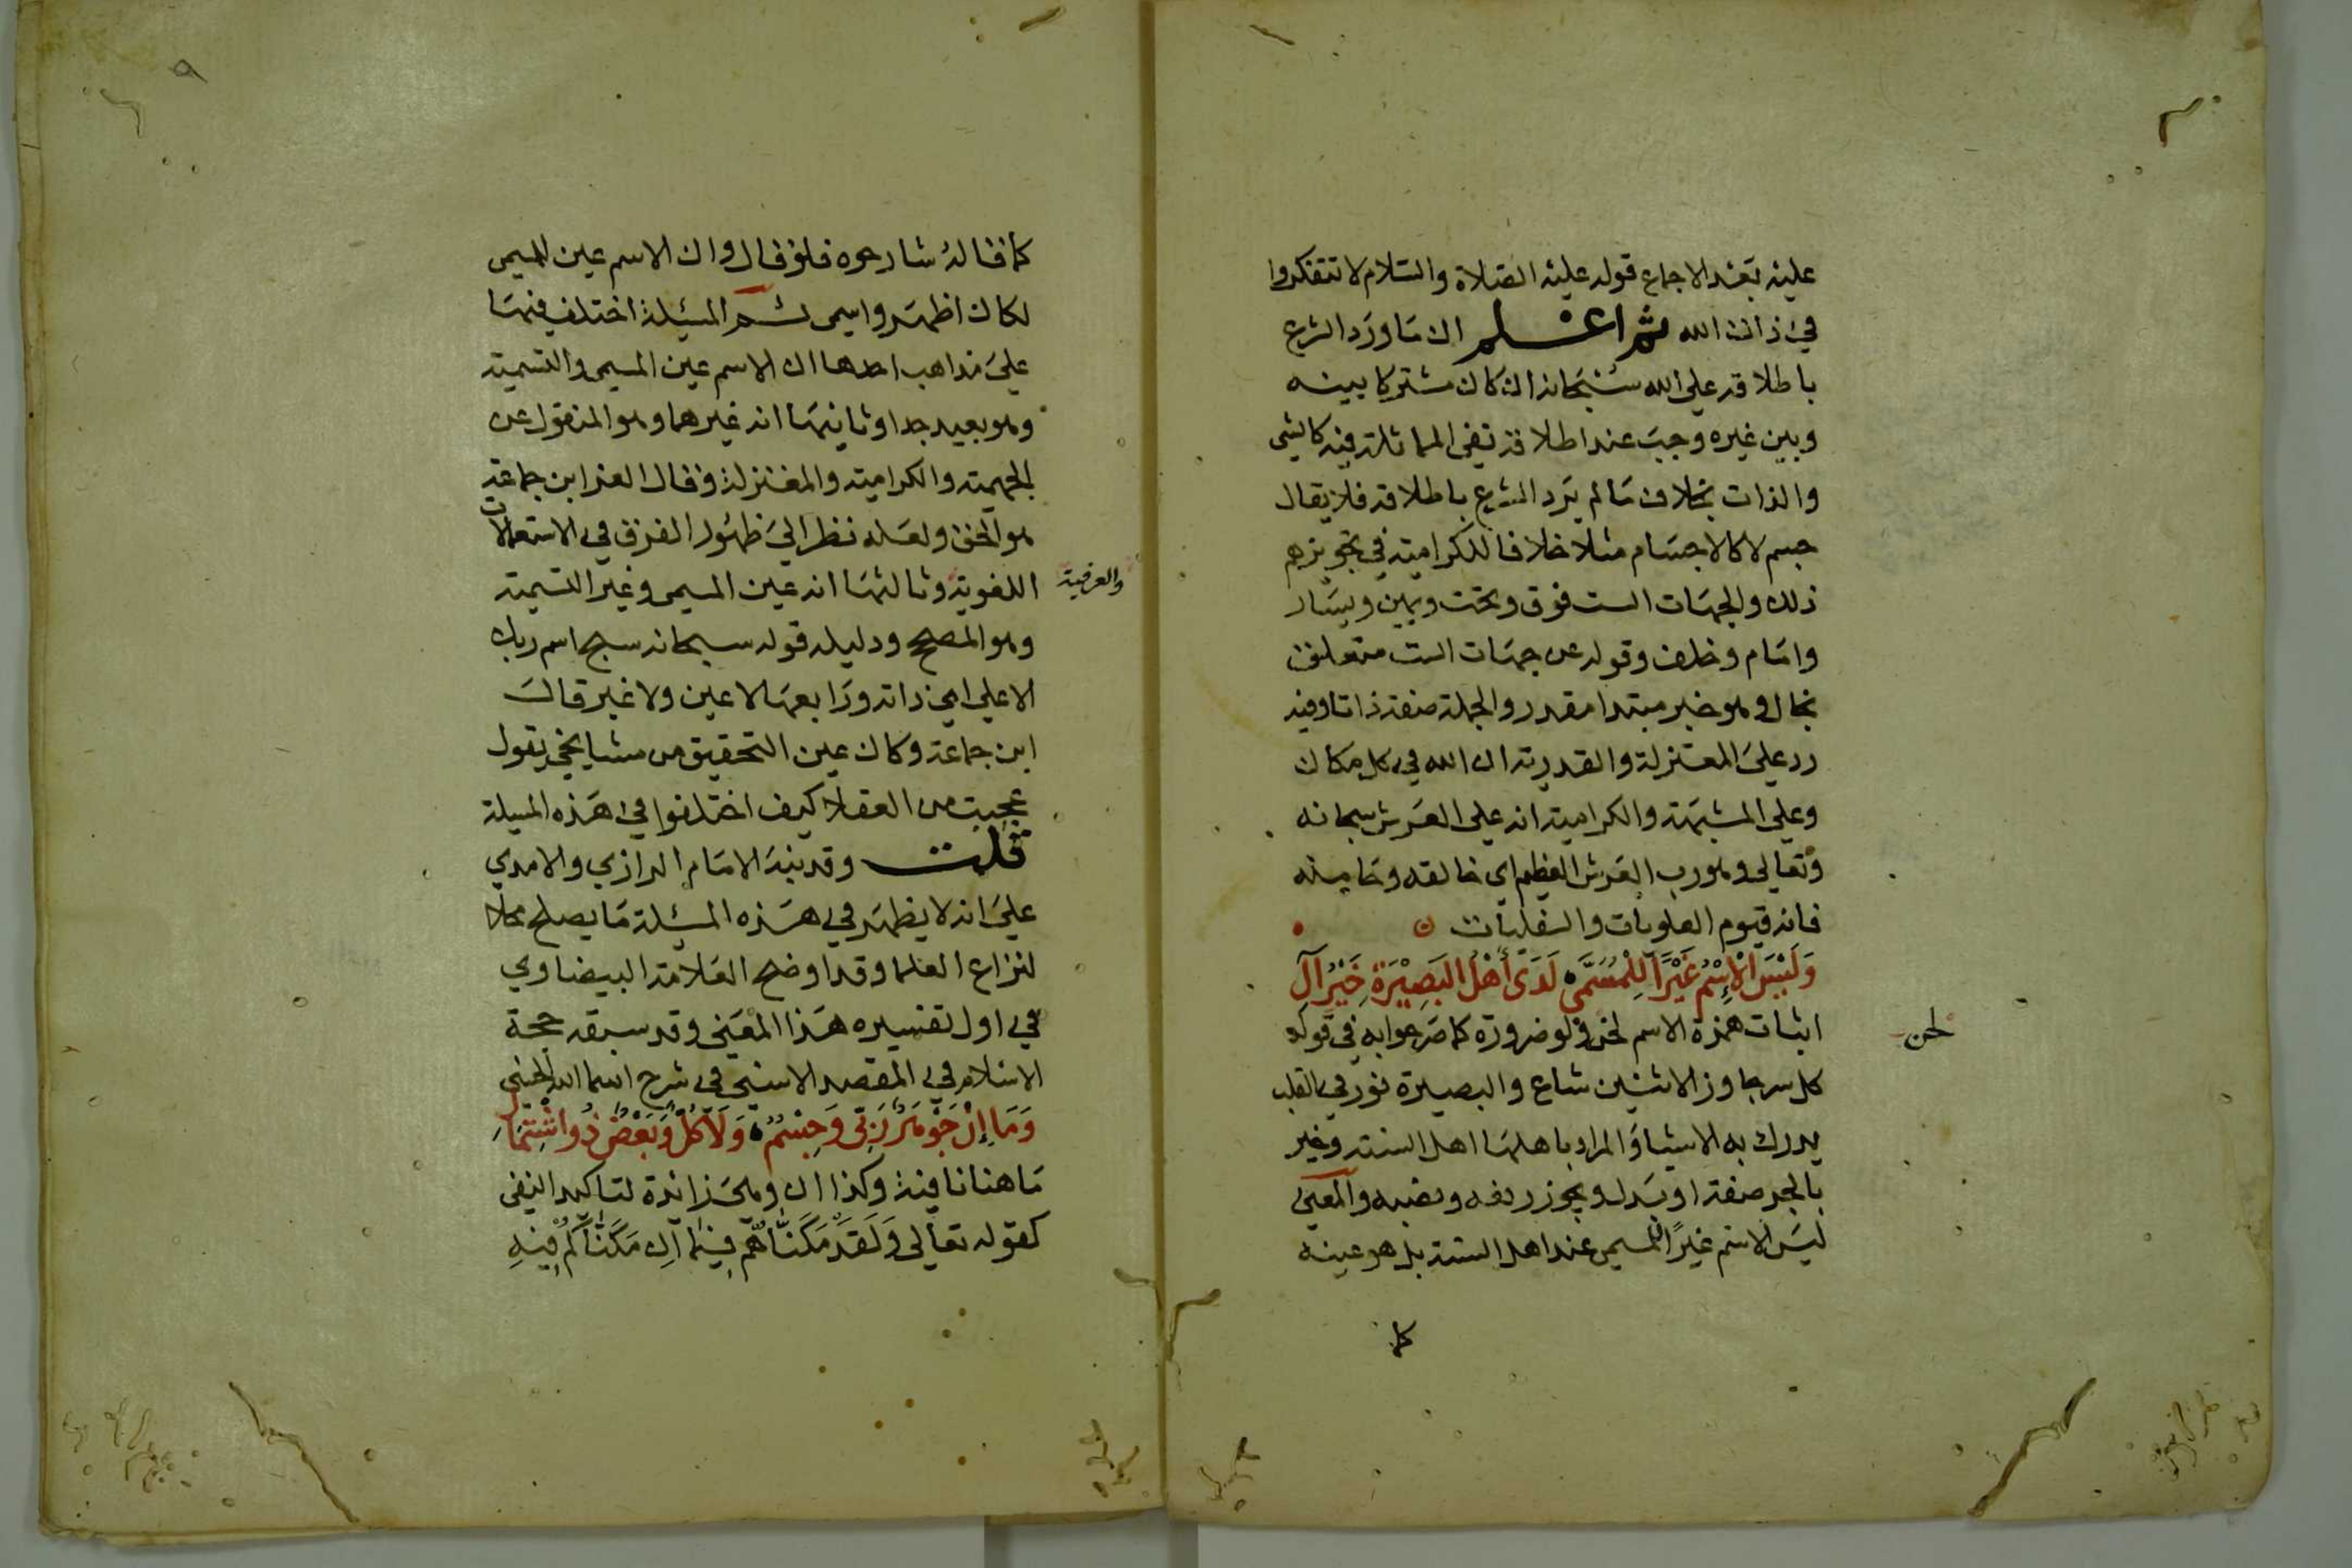 عليه بعد الاجماع قوله عليه الصلاة والسلام لا تتفكروا
في ذات الله ثم اعلم ان ما ورد الشرع
باطلاقه على الله سبحانه ان كان مشتركا بينه
وبين غيره وجب عند اطلاقه نفي المماثلة فيه كالشي
والذات بخلاف ما لم يرد الشرع باطلاقه فلا يقال
جسم لا كالاجسام مثلا خلافا للكرامية في تجويزهم
ذلك والجهات الست فوق وتحت ويمين ويسار
وامام وخلف وقوله عن جهات الست متعلق
بخال وهو خبر مبتدا مقدر والجملة صفة ذاتا وفيه
رد على المعتزلة والقدرية ان الله في كل مكان
وعلى المشبهة والكرامية انه على العرش سبحانه
وتعالى وهو رب العرش العظيم اي خالقه
فانه قيوم العلويات والسفليات
وَلَيْسَ الْاِسْمُ غَيْرًا لِلْمُسَمَّى لَدَى أَهْلِ الْبَصِيْرَةِ خَيْرِ آلِ
اثبات همزة الاسم لحن ولو ضرورة كما صرحوا به في قوله
لحن
كل سر جاوز الاثنين شاع والبصيرة نور في القلب
يدرك به الاشيا والمراد باهلها اهل السنة وخير
بالجر صفة او بدل ويجوز رفعه ونصبه والمعنى
ليس الاسم غيرا للمسمى عند اهل السنة بل هو عينه
كما
٩
كما قاله شارحوه فلو قال وان الاسم عين للمسمى
لكان اظهر واسمى ثم المسئلة اختلف فيها
على مذاهب احدها ان الاسم عين المسمى والتسمية
وهو بعيد جدا وثانيها انه غيرهما وهو المنقول عن
الجهمية والكرامية والمعتزلة وقال العز ابن جماعة
هو الحق ولعله نظر الى ظهور الفرق في الاستعمالات
اللغوية وثالثها انه عين المسمى وغير التسمية
والعرفية
وهو المصحح ودليله قوله سبحانه سبح اسم ربك
الاعلى اي ذاته ورابعها لا عين ولا غير قال
ابن جماعة وكان عين التحقيق من مشايخي يقول
عجبت من العقلا كيف اختلفوا في هذه المسيلة
قلت وقد نبه الامام الرازي والامدي
على انه لا يظهر في هذه المسئلة ما يصلح محلا
لنزاع العلما وقد اوضح العلامة البيضاوي
في اول تفسيره هذا المعنى وقد سبقه حجة
الاسلام في المقصد الاسنى في شرح اسما الله الحسنى
وَمَا إِنْ جَوْهَرٌ رَبِّى وَجِسْمٌ وَلَا كُلٌّ وَبَعْضٌ ذُو اشْتِمَالِ
ما هنا نافية وكذا ان وهي زائدة لتاكيد النفي
كقوله تعالى وَلَقَدْ مَكَنَّاهُمْ فِيمَا اِن مَكَنَّاكُمْ فِيْهِ